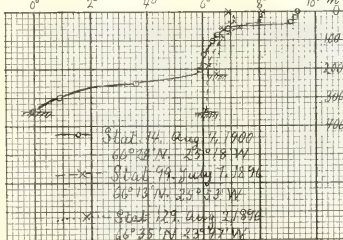 0° 2° 4° 6° 8° 10° m
0
100
200
300
400
Stat. 14. Aug 7, 1900
66°28'N. 25°18'W
Stat 94. July 1. 1896
66°13'N. 25°53'W
Stat 129. Aug 2 1896
66°35'N 23°47'W